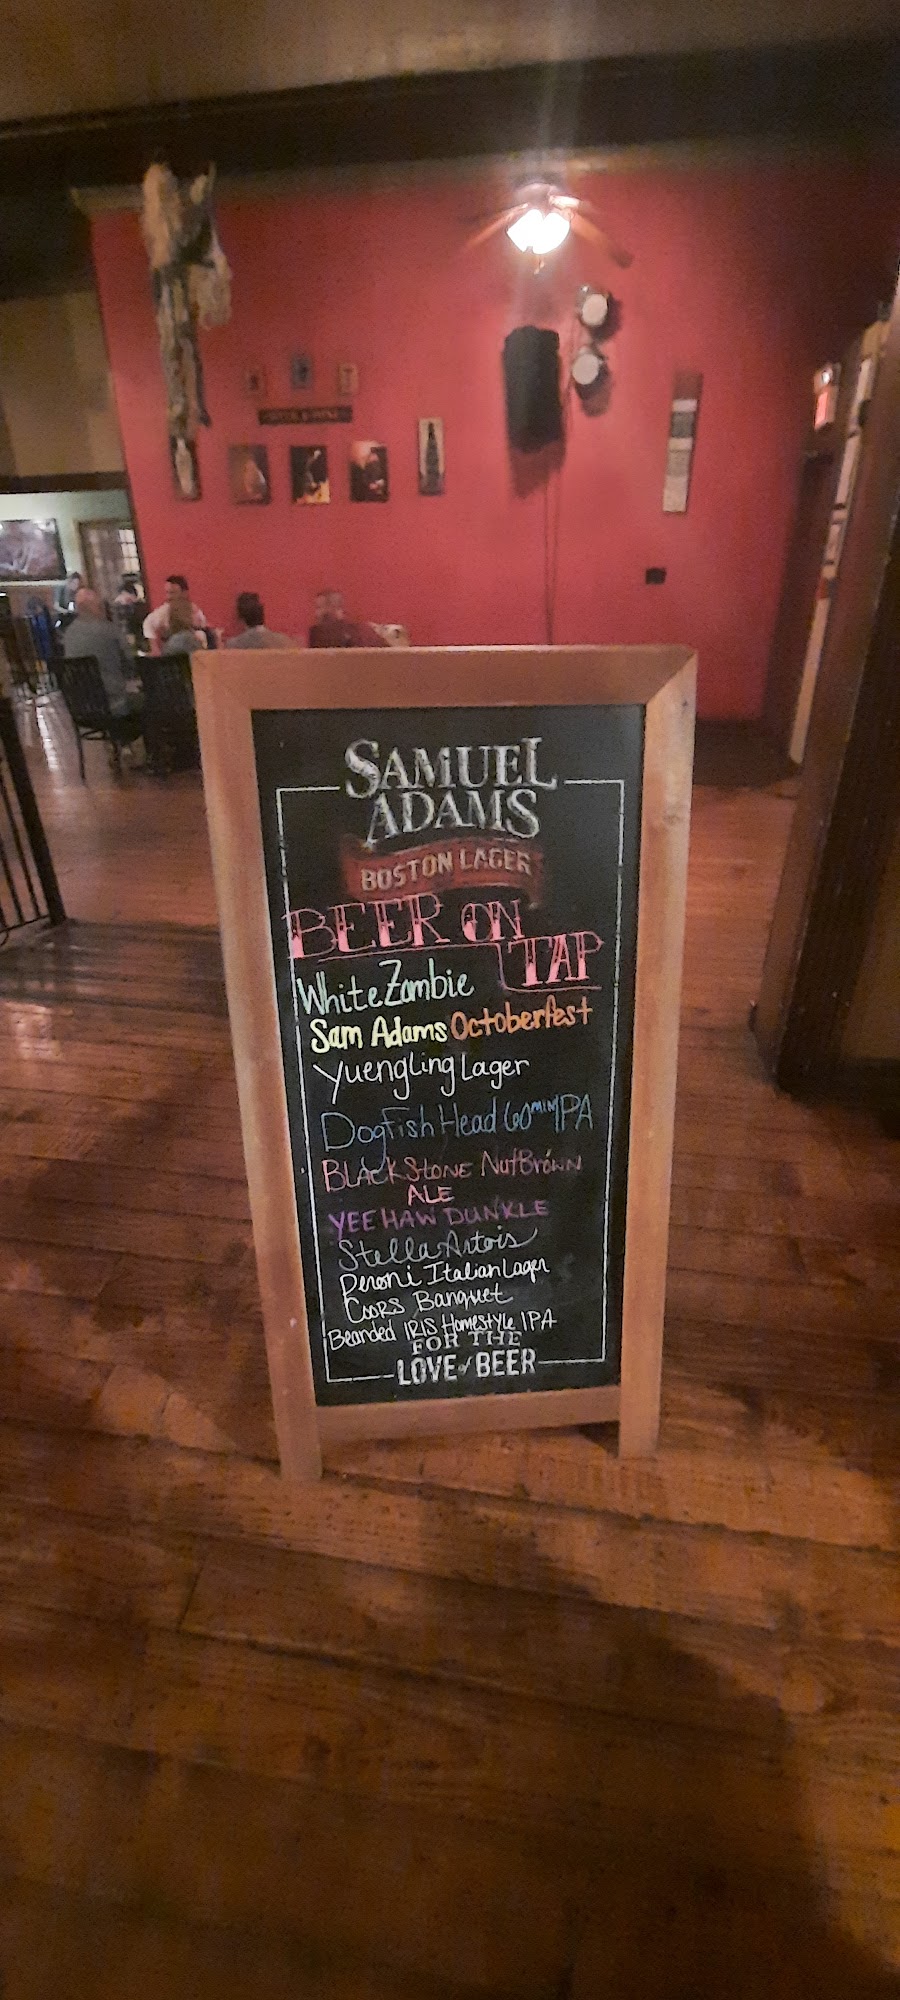 SAMUEL
ADAMS
BOSTON LAGER
BEER ON
TAP
White Zombie
Sam Adams Octoberfest
Yuengling Lager
Dogfish Head 60 MIN IPA
BLACKSTONE NutBrown
ALE
YEE HAW DUNKLE
Stella Artois
Peroni Italian Lager
Coors Banquet
Bearded IRIS Homestyle IPA
FOR THE
LOVE of BEER